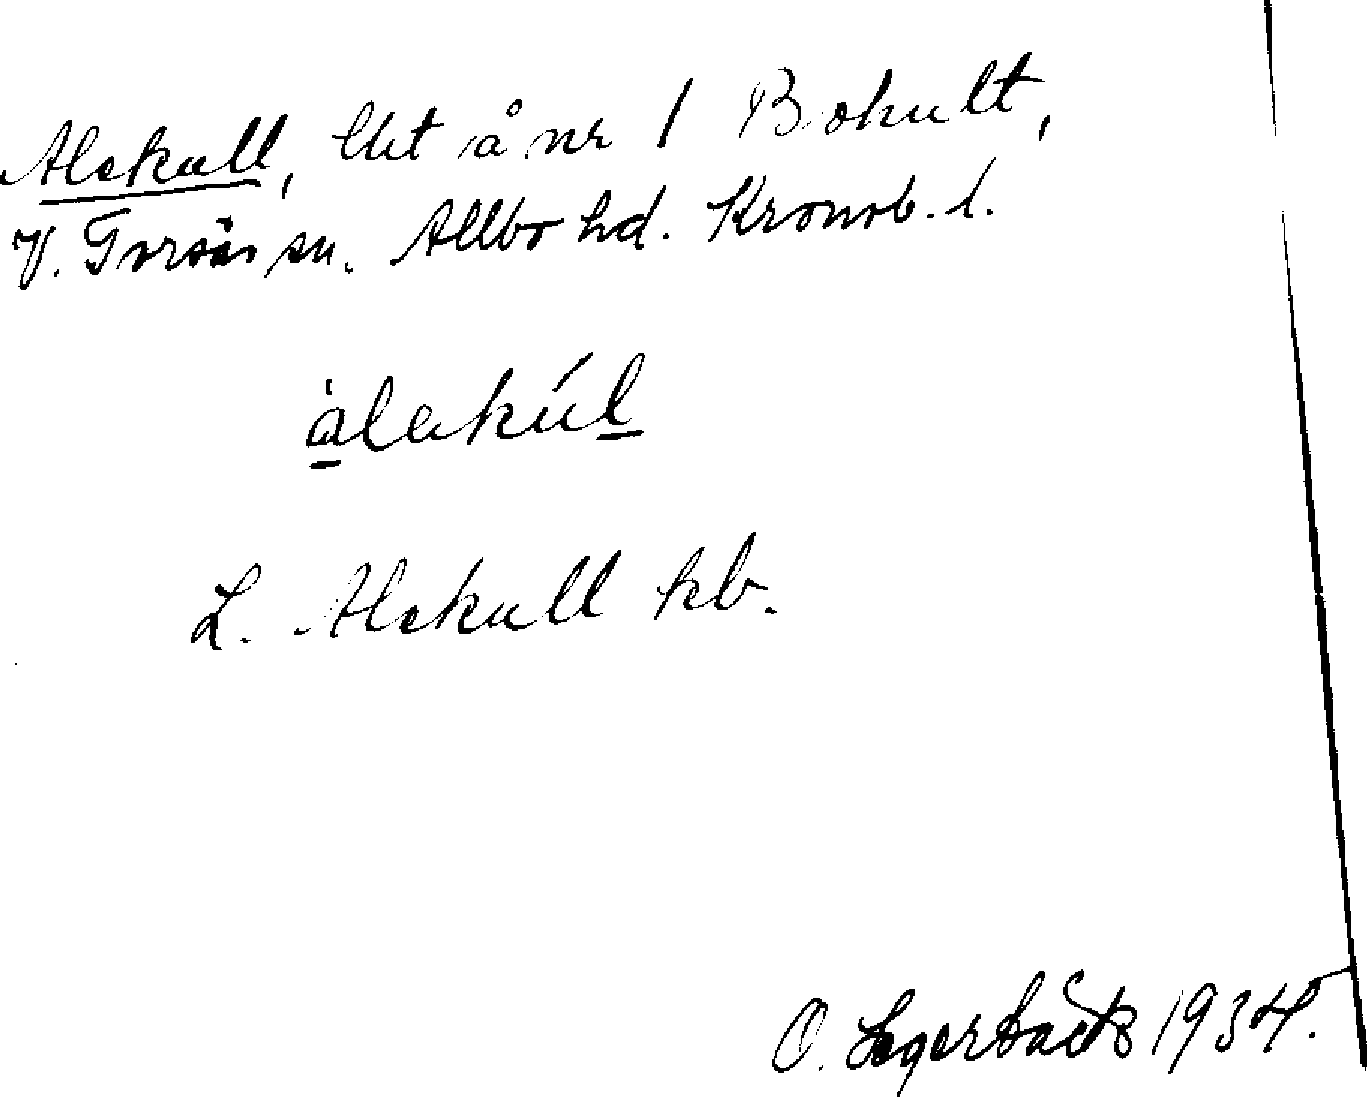 Alekull, lht å nr 1 Bokult,
V. Torsås sn. Allbo hd. Kronob. l.
àlekúl
L. Alekull kb.
O. 1934.